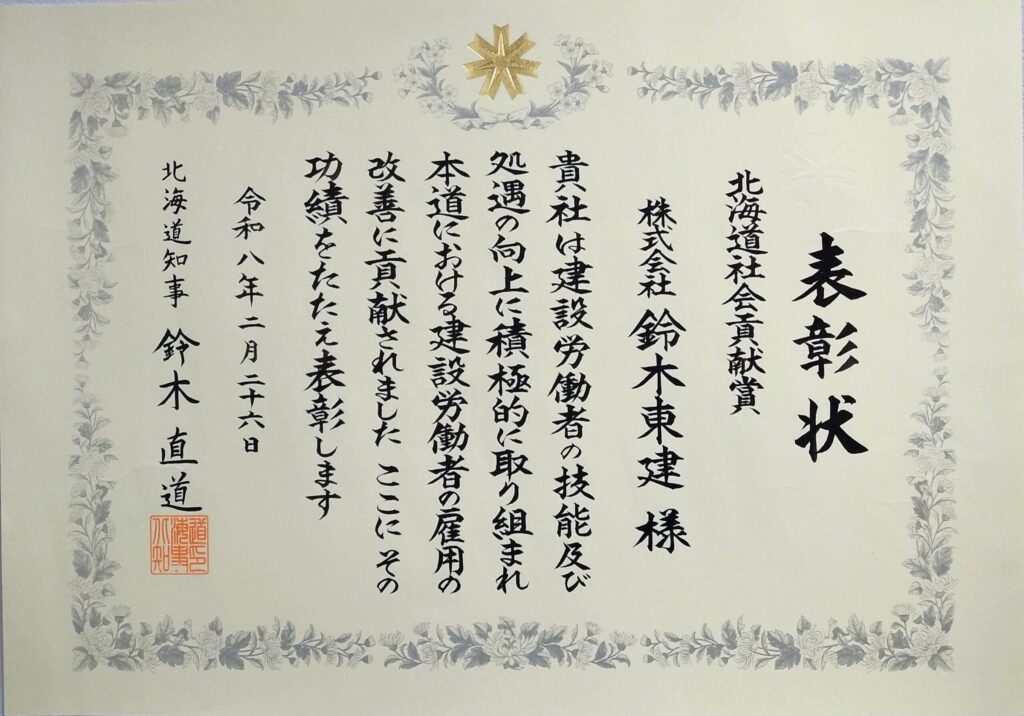 表彰状
北海道社会貢献賞
株式会社 鈴木東建 様
貴社は建設労働者の技能及び
処遇の向上に積極的に取り組まれ
本道における建設労働者の雇用の
改善に貢献されました ここに その
功績をたたえ表彰します
令和八年二月二十六日
北海道知事 鈴木直道